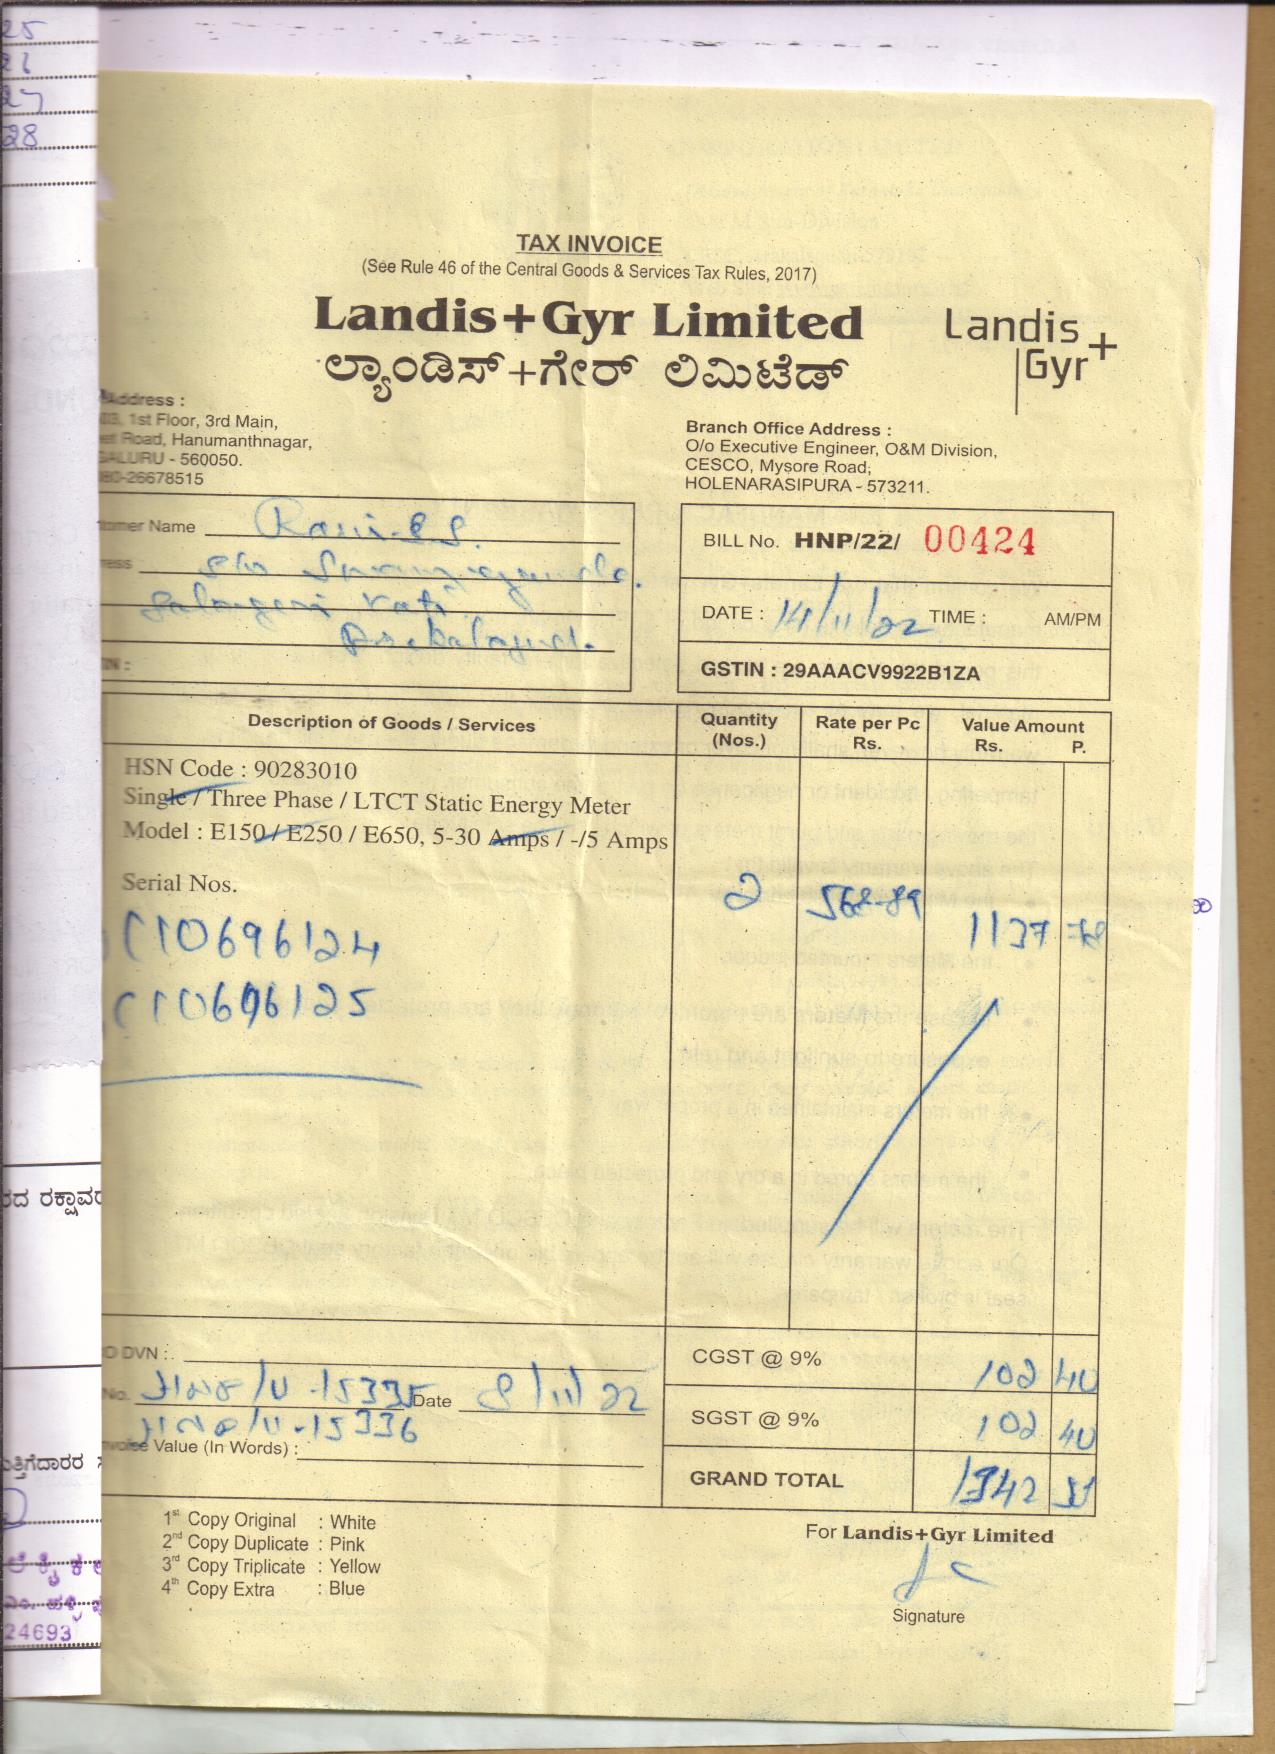 25
27
28
TAX INVOICE
(See Rule 46 of the Central Goods & Services Tax Rules, 2017)
Landis+Gyr Limited
ಲ್ಯಾಂಡಿಸ್+ಗೇರ್ ಲಿಮಿಟೆಡ್
Landis+
Gyr
Address :
1st Floor, 3rd Main,
Road, Hanumanthnagar,
GALURU - 560050.
080-26678515
Branch Office Address :
O/o Executive Engineer, O&M Division,
CESCO, Mysore Road,
HOLENARASIPURA - 573211.
tomer Name
ress
BILL No. HNP/22/ 00424
DATE : 14/11/22 TIME : AM/PM
GSTIN : 29AAACV9922B1ZA
Description of Goods / Services Quantity (Nos.) Rate per Pc Rs. Value Amount Rs. P.
HSN Code : 90283010
Single / Three Phase / LTCT Static Energy Meter
Model : E150 / E250 / E650, 5-30 Amps / -/5 Amps
Serial Nos.
2 568-89 1137 78
C10696124
C10696125
ರದ ರಕ್ಷಾವರ
O DVN :
No. 15335 Date 8/11/22
15336
Invoice Value (In Words) :
CGST @ 9% 102 40
SGST @ 9% 102 40
GRAND TOTAL 1342 51
1st Copy Original : White
2nd Copy Duplicate : Pink
3rd Copy Triplicate : Yellow
4th Copy Extra : Blue
For Landis+Gyr Limited
Signature
24693